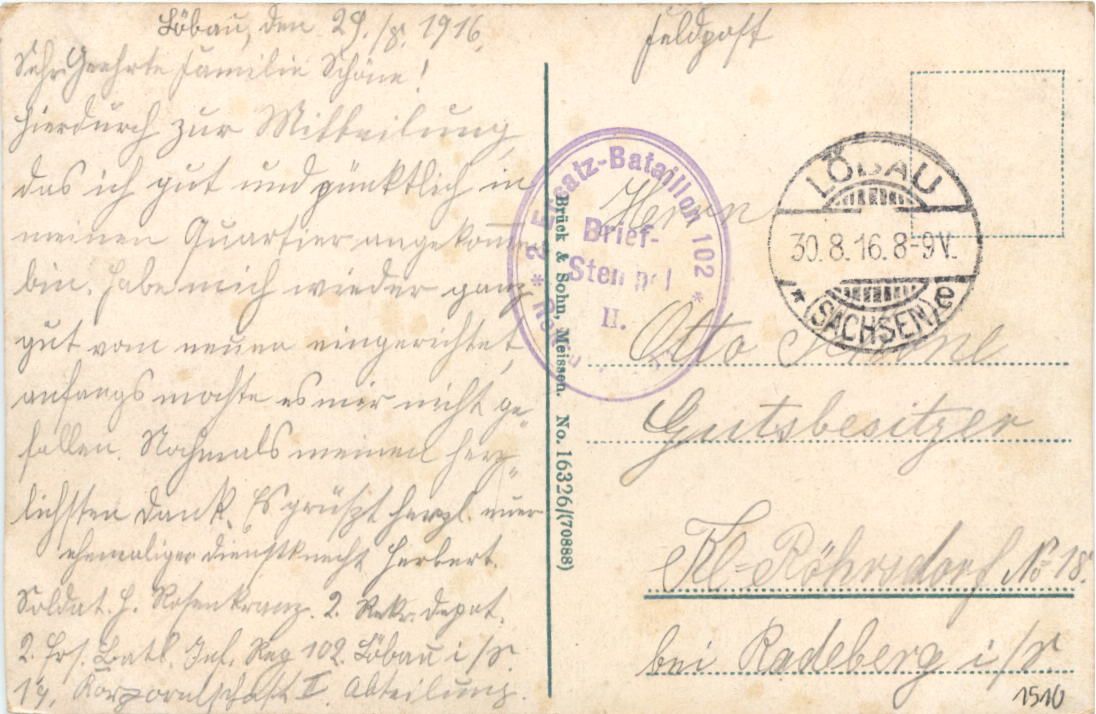 Löbau, den 29./8. 1916.
Sehr Geehrte Familie Schöne!
Hierdurch zur Mitteilung,
das ich gut und pünktlich in
meinen Quartier angekomm
bin. Habe mich wieder ganz
gut vom neuen eingerichtet,
anfangs mochte es mir nicht ge-
fallen. Nochmals meinen herz-
lichsten Dank. Es grüßt herzl. euer
ehemaliger Dienstknecht Herbert.
Soldat. H. Rosenkranz. 2. Rekr. Depot.
2. Ers. Batl. Inf. Reg 102. Löbau i/S.
17. Korporalschaft II. Abteilung.
Brück & Sohn, Meissen. No. 16326/(70888)
Feldpost
* 2. Ersatz-Bataillon 102 *
Brief-
Stempel
II.
LÖBAU
30.8.16.8-9V.
* (SACHSEN) e
Herrn
Otto Schöne
Gutsbesitzer
Kl=Röhrsdorf No 18.
bei Radeberg i/S.
1510